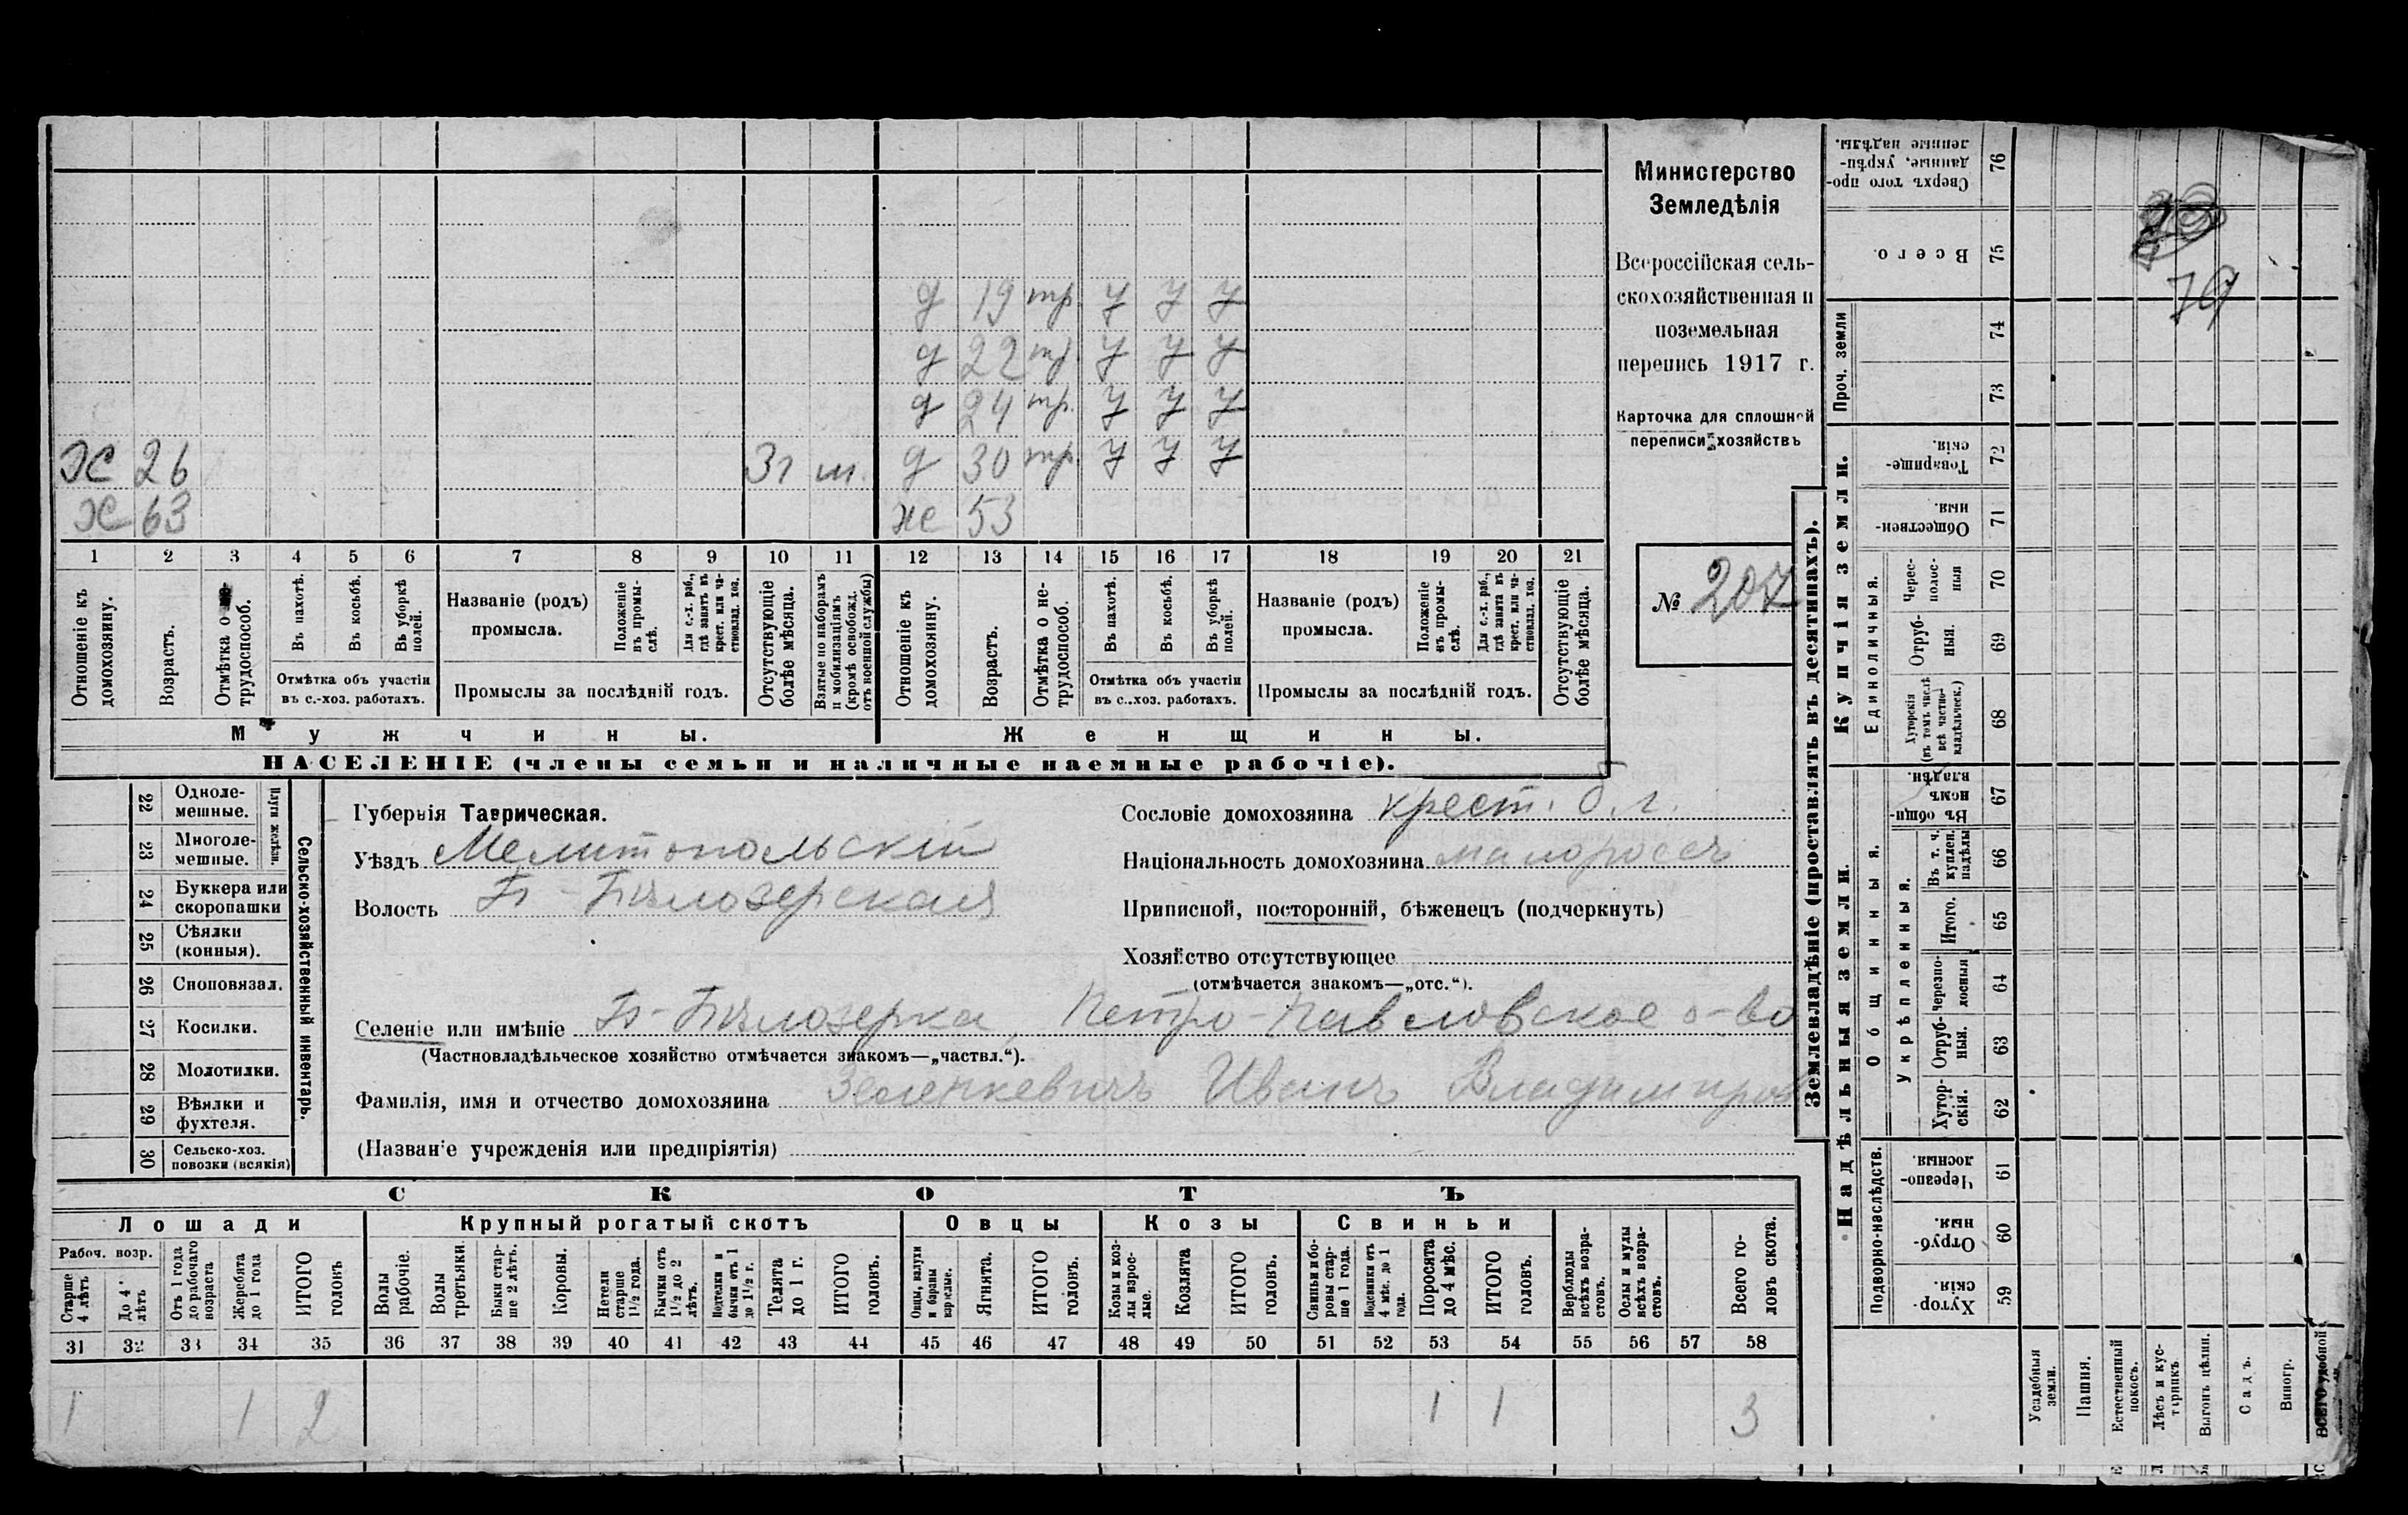 Министерство
Земледѣлія
Всероссійская сель-
скохозяйственная и
поземельная
перепись 1917 г.
Карточка для сплошной
переписи хозяйствъ
№ 207
79
д 19 тр. У У У
д 22 тр. У У У
д 24 тр. У У У
Х 26 31 м. д 30 тр. У У У
Х 63 же 53
1 2 3 4 5 6 7 8 9 10 11 12 13 14 15 16 17 18 19 20 21
Отношеніе къ домохозяину.
Возрастъ.
Отмѣтка о трудоспособ.
Въ пахотѣ.
Въ косьбѣ.
Въ уборкѣ полей.
Отмѣтка объ участіи
въ с.-хоз. работахъ.
Названіе (родъ)
промысла.
Положеніе въ промы-слѣ.
Для с.-х. раб., гдѣ занятъ въ крест. или ча-стновлад. хоз.
Промыслы за послѣдній годъ.
Отсутствующіе болѣе мѣсяца.
Взятые по наборамъ и мобилизаціямъ (кромѣ освобожд. отъ военной службы)
Отношеніе къ домохозяину.
Возрастъ.
Отмѣтка о не-трудоспособ.
Въ пахотѣ.
Въ косьбѣ.
Въ уборкѣ полей.
Отмѣтка объ участіи
въ с..хоз. работахъ.
Названіе (родъ)
промысла.
Положеніе въ промы-слѣ.
Для с.-х. раб., гдѣ занята въ крест. или ча-стновлад. хоз.
Промыслы за послѣдній годъ.
Отсутствующіе болѣе мѣсяца.
Мужчины. Женщины.
НАСЕЛЕНІЕ (члены семьи и наличные наемные рабочіе).
22 Одноле-мешные.
23 Многоле-мешные.
Плуги желѣзн.
24 Буккера или скоропашки
25 Сѣялки (конныя).
26 Сноповязал.
27 Косилки.
28 Молотилки.
29 Вѣялки и фухтеля.
30 Сельско-хоз. повозки (всякія)
Сельско-хозяйственный инвентарь.
Губернія Таврическая.
Уѣздъ Мелитопольскій
Волость Б-Бѣлозерская
Сословіе домохозяина крест. б.г.
Національность домохозяина малороссъ
Приписной, посторонній, бѣженецъ (подчеркнуть)
Хозяйство отсутствующее
(отмѣчается знакомъ—„отс.“).
Селеніе или имѣніе Б-Бѣлозерка, Петро-Павловское о-во
(Частновладѣльческое хозяйство отмѣчается знакомъ—„частвл.“).
Фамилія, имя и отчество домохозяина Зеленкевичъ Иванъ Владимиров
(Названіе учрежденія или предпріятія)
СКОТЪ
Лошади Крупный рогатый скотъ Овцы Козы Свиньи
Рабоч. возр.
Старше 4 лѣтъ
До 4 лѣтъ
Отъ 1 года до рабочаго возраста
Жеребята до 1 года
ИТОГО головъ
Волы рабочіе.
Волы третьяки.
Быки стар-ше 2 лѣтъ.
Коровы.
Нетели старше 1½ года.
Бычки отъ 1½ до 2 лѣтъ.
Нетелки и бычки отъ 1 до 1½ г.
Телята до 1 г.
ИТОГО головъ.
Овцы, валухи и бараны взрослые.
Ягнята.
ИТОГО головъ.
Козы и коз-лы взрос-лые.
Козлята
ИТОГО головъ.
Свиньи и бо-ровы стар-ше 1 года.
Подсвинки отъ 4 мѣс. до 1 года.
Поросята до 4 мѣс.
ИТОГО головъ.
Верблюды всѣхъ возра-стовъ.
Ослы и мулы всѣхъ возра-стовъ.
Всего го-ловъ скота.
31 32 33 34 35 36 37 38 39 40 41 42 43 44 45 46 47 48 49 50 51 52 53 54 55 56 57 58
1 1 2 1 1 3
Землевладѣніе (проставлять въ десятинахъ).
Надѣльныя земли. Купчія земли. Проч. земли
Подворно-наслѣдств. Общинныя. Единоличныя.
Укрѣпленныя.
Сверхъ того про-данные, укрѣп-ленные надѣлы. 76
Всего. 75
74
73
Товарище-скія. 72
Обществен-ныя. 71
Черес-полос-ныя 70
Отруб-ныя. 69
Хуторскія (въ томъ числѣ всѣ частно-владѣльческ.) 68
Въ общи-номъ владѣн. 67
Въ т. ч. куплен. надѣлы 66
Итого. 65
Черезпо-лосныя 64
Отруб-ныя. 63
Хутор-скія. 62
Черезпо-лосныя. 61
Отруб-ныя. 60
Хутор-скія. 59
Усадебныя земли.
Пашня.
Естественный покосъ.
Лѣсъ и кус-тарникъ
Выгонъ цѣлин.
Садъ.
Виногр.
ВСЕГО удобной